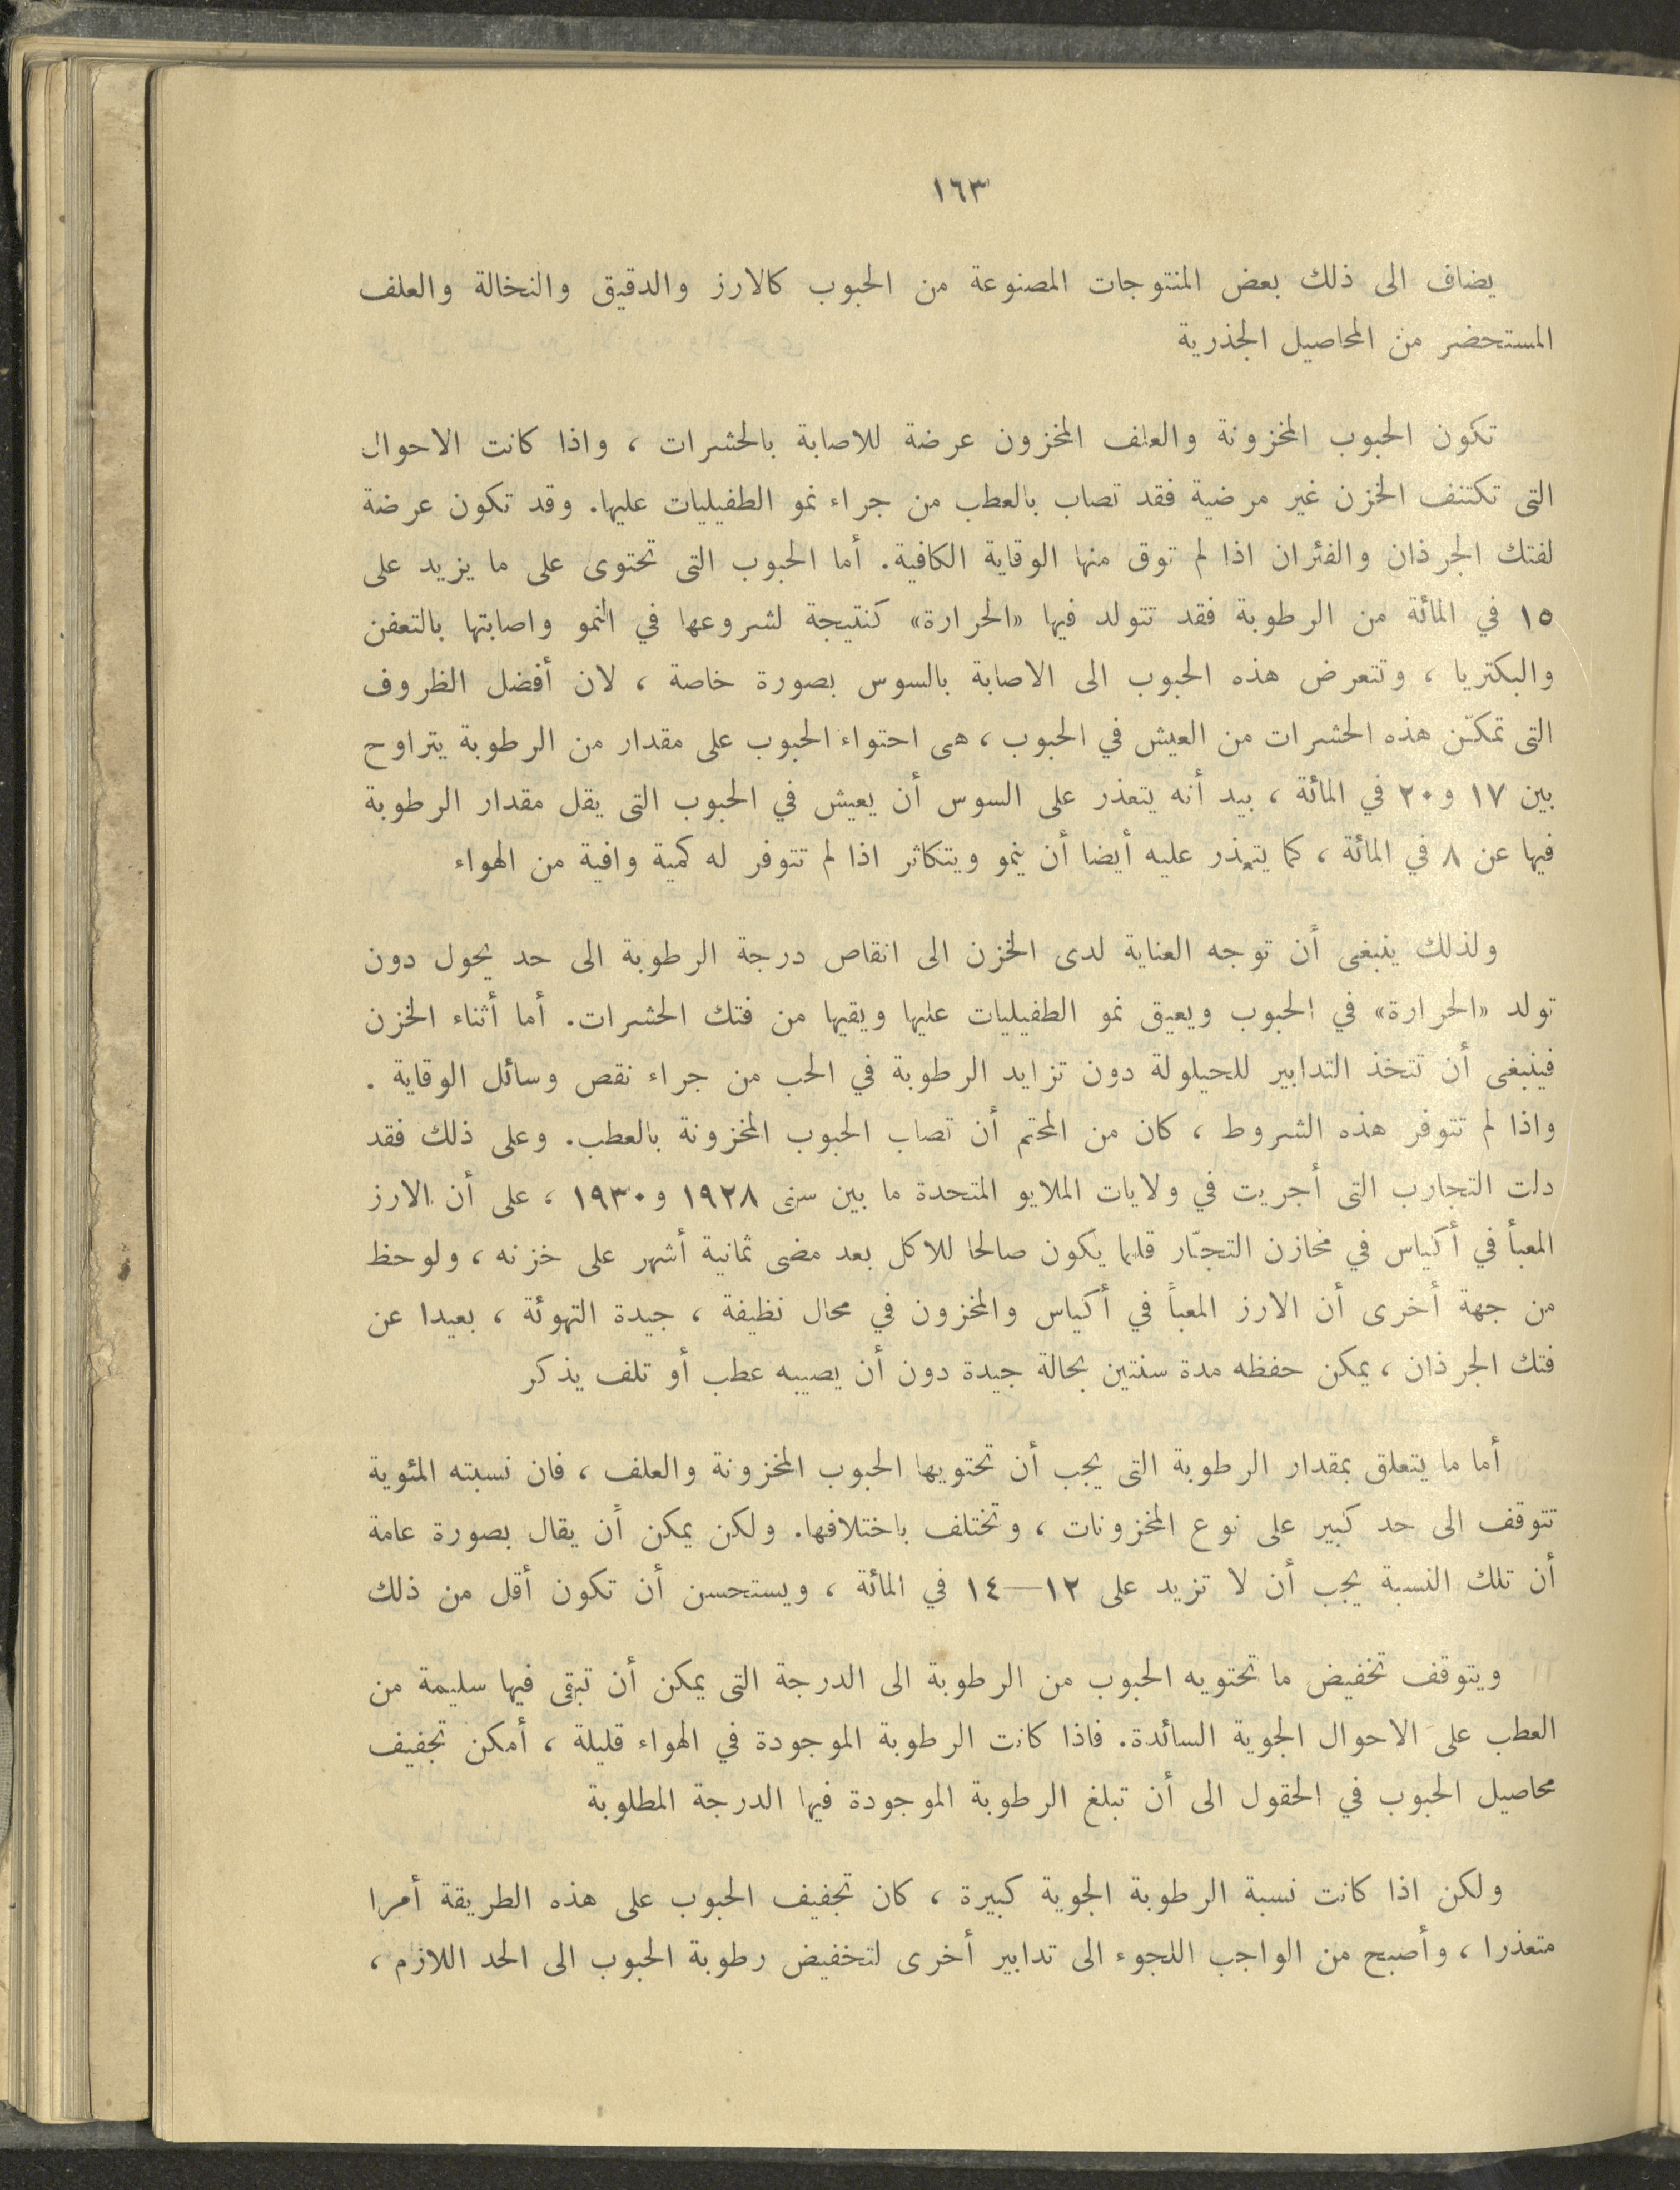 ١٦٣
يضاف الى ذلك بعض المنتوجات المصنوعة من الحبوب كالارز والدقيق والنخالة والعلف
المستحضر من المحاصيل الجذرية
تكون الحبوب المخزونة والعلف المخزون عرضة للاصابة بالحشرات ، واذا كانت الاحوال
التى تكتنف الخزن غير مرضية فقد تصاب بالعطب من جراء نمو الطفيليات عليها. وقد تكون عرضة
لفتك الجرذان والفئران اذا لم توق منها الوقاية الكافية. أما الحبوب التى تحتوى على ما يزيد على
١٥ في المائة من الرطوبة فقد تتولد فيها «الحرارة» كنتيجة لشروعها في النمو واصابتها بالتعفن
والبكتريا ، وتتعرض هذه الحبوب الى الاصابة بالسوس بصورة خاصة ، لان أفضل الظروف
التى تمكّن هذه الحشرات من العيش في الحبوب ، هى احتواء الحبوب على مقدار من الرطوبة يتراوح
بين ١٧ و٢٠ في المائة ، بيد أنه يتعذر على السوس أن يعيش في الحبوب التى يقل مقدار الرطوبة
فيها عن ٨ في المائة ، كما يتعذر عليه أيضا أن ينمو ويتكاثر اذا لم تتوفر له كمية وافية من الهواء
ولذلك ينبغى أن توجه العناية لدى الخزن الى انقاص درجة الرطوبة الى حد يحول دون
تولد «الحرارة» في الحبوب ويعيق نمو الطفيليات عليها ويقيها من فتك الحشرات. أما أثناء الخزن
فينبغى أن تتخذ التدابير للحيلولة دون تزايد الرطوبة في الحب من جراء نقص وسائل الوقاية .
واذا لم تتوفر هذه الشروط ، كان من المحتم أن تصاب الحبوب المخزونة بالعطب. وعلى ذلك فقد
دلت التجارب التى أجريت في ولايات الملايو المتحدة ما بين سنى ١٩٢٨ و١٩٣٠ ، على أن الارز
المعبأ في أكياس في مخازن التجّار قلما يكون صالحا للاكل بعد مضى ثمانية أشهر على خزنه ، ولوحظ
من جهة أخرى أن الارز المعبأ في أكياس والمخزون في محال نظيفة ، جيدة التهوئة ، بعيدا عن
فتك الجرذان ، يمكن حفظه مدة سنتين بحالة جيدة دون أن يصيبه عطب أو تلف يذكر
أما ما يتعلق بمقدار الرطوبة التى يجب أن تحتويها الحبوب المخزونة والعلف ، فان نسبته المئوية
تتوقف الى حد كبير على نوع المخزونات ، وتختلف باختلافها. ولكن يمكن أن يقال بصورة عامة
أن تلك النسبة يجب أن لا تزيد على ١٢—١٤ في المائة ، ويستحسن أن تكون أقل من ذلك
ويتوقف تخفيض ما تحتويه الحبوب من الرطوبة الى الدرجة التى يمكن أن تبقى فيها سليمة من
العطب على الاحوال الجوية السائدة. فاذا كانت الرطوبة الموجودة في الهواء قليلة ، أمكن تجفيف
محاصيل الحبوب في الحقول الى أن تبلغ الرطوبة الموجودة فيها الدرجة المطلوبة
ولكن اذا كانت نسبة الرطوبة الجوية كبيرة ، كان تجفيف الحبوب على هذه الطريقة أمرا
متعذرا ، وأصبح من الواجب اللجوء الى تدابير أخرى لتخفيض رطوبة الحبوب الى الحد اللازم ،